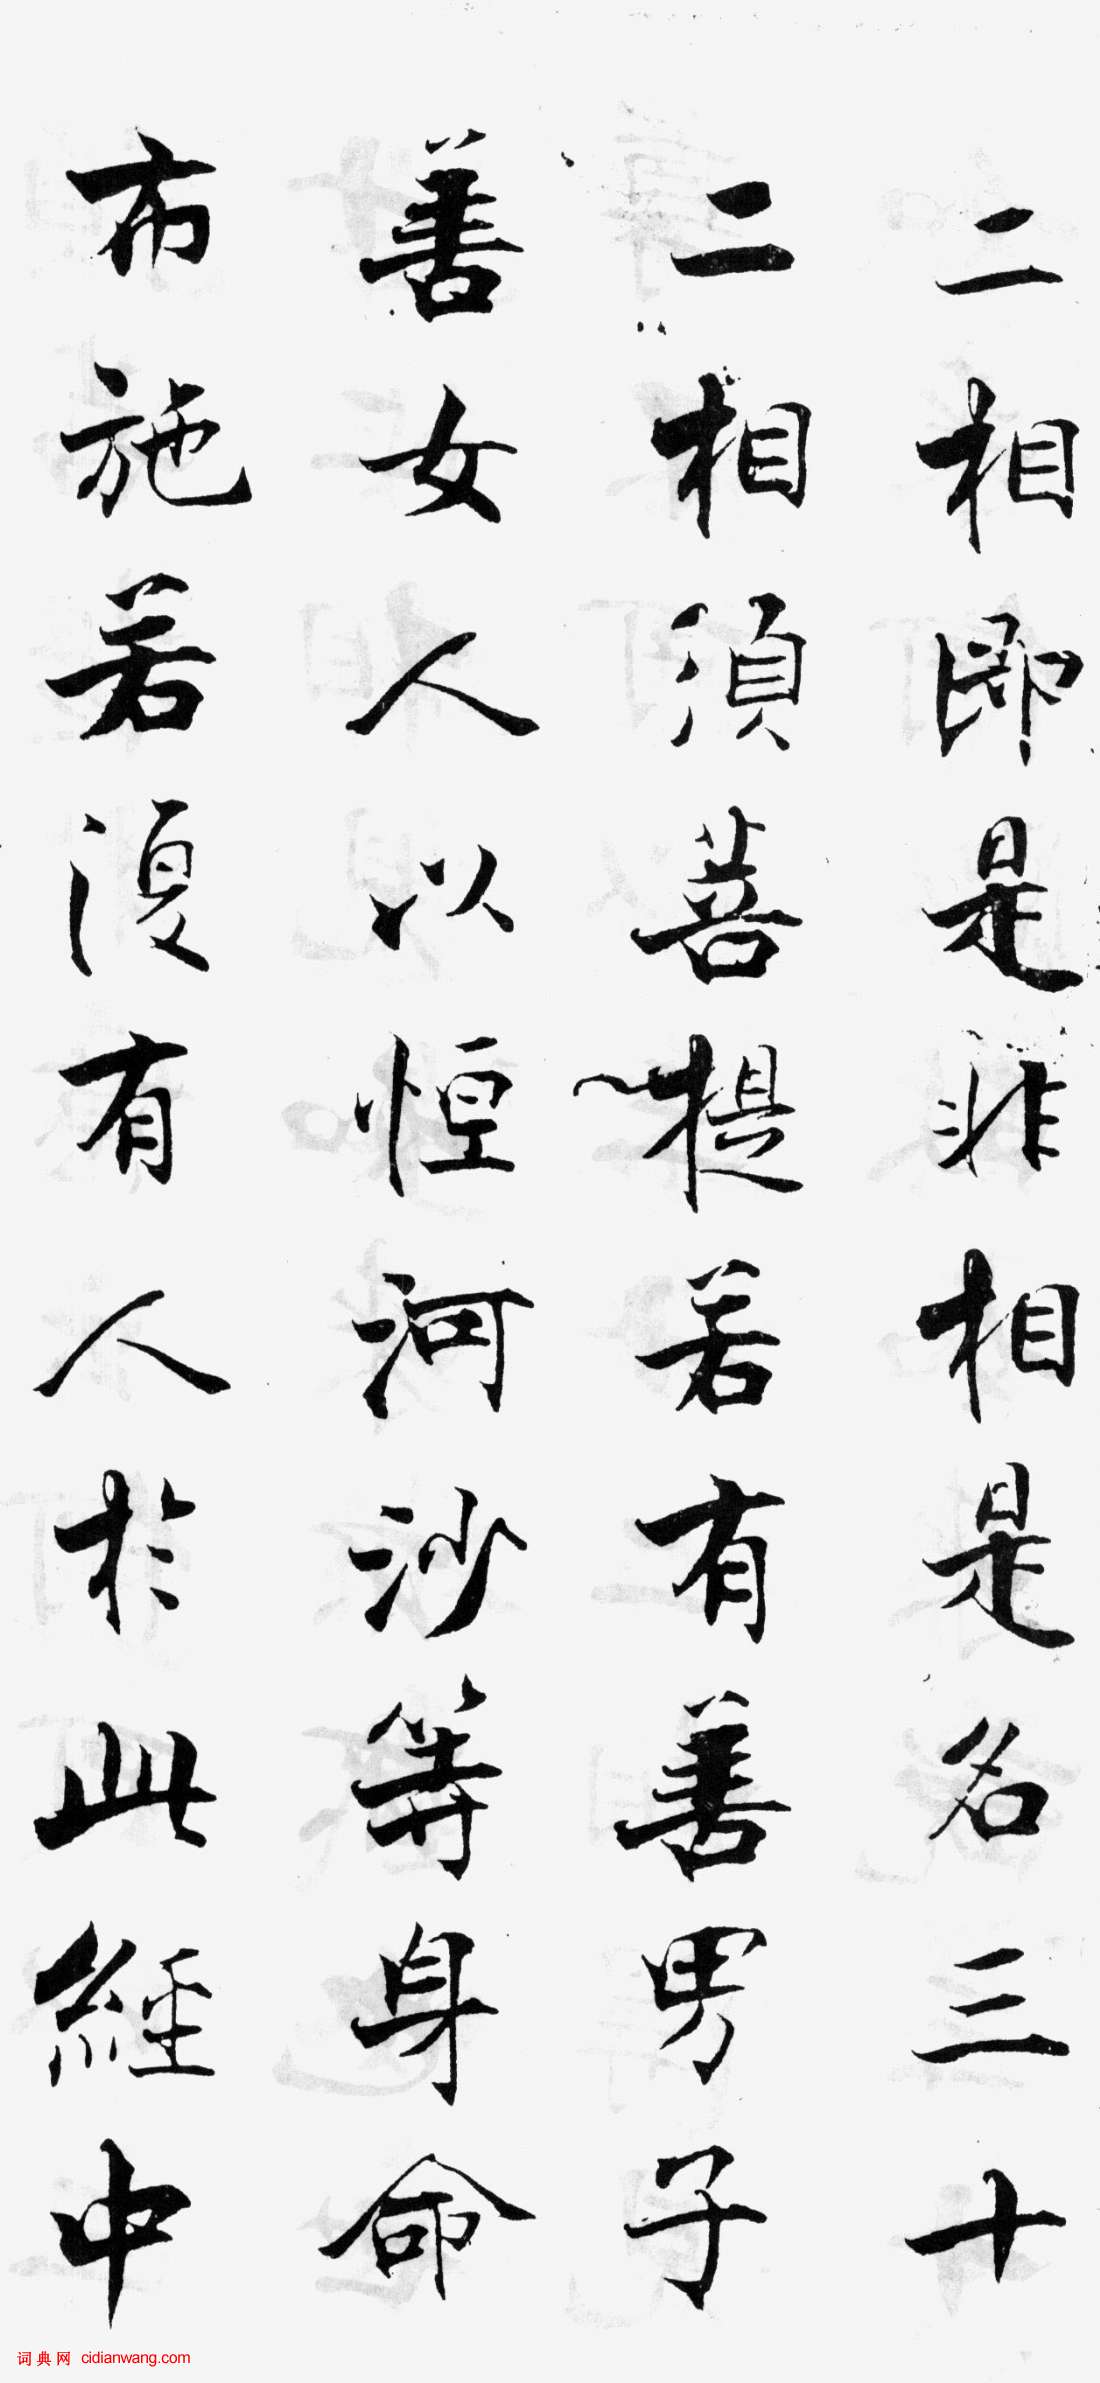 二相即是非相是名三十
二相須菩提若有善男子
善女人以恒河沙等身命
布施若復有人於此經中
词典网 cidianwang.com